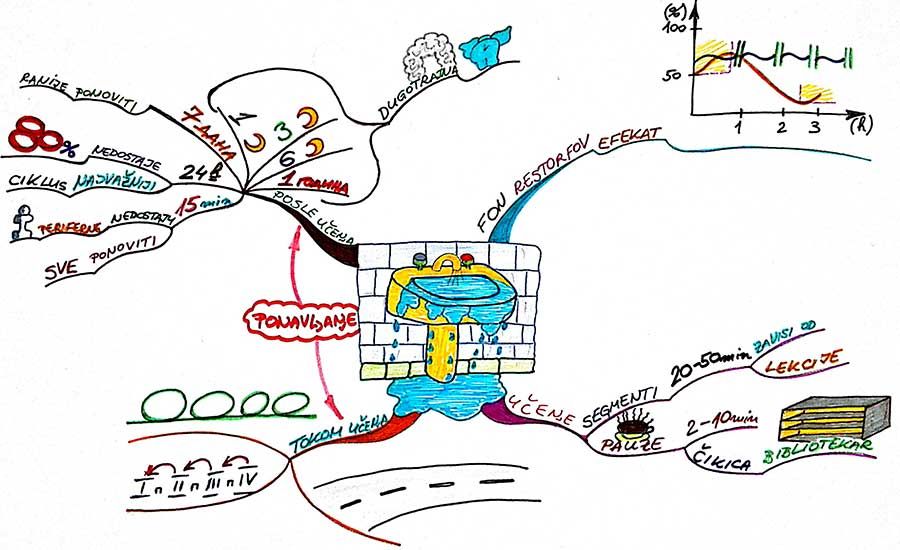 RANIJE PONOVITI
7 ДАНА
80%
NEDOSTAJE
24h
CIKLUS NAJVAŽNIJI
15 min
PERIFERNE NEDOSTAJU
SVE PONOVITI
1
3
6
1 ГОДИНА
DUGOTRAJNA
POSLE UČENJA
PONAVLJANJE
TOKOM UČENJA
I n II n III n IV
FON RESTORFOV EFEKAT
(%)
100
50
1 2 3 (h)
UČENJE
SEGMENTI
20-50min
ZAVISI OD
LEKCIJE
PAUZE
2-10min
ČIKICA
BIBLIOTEKAR